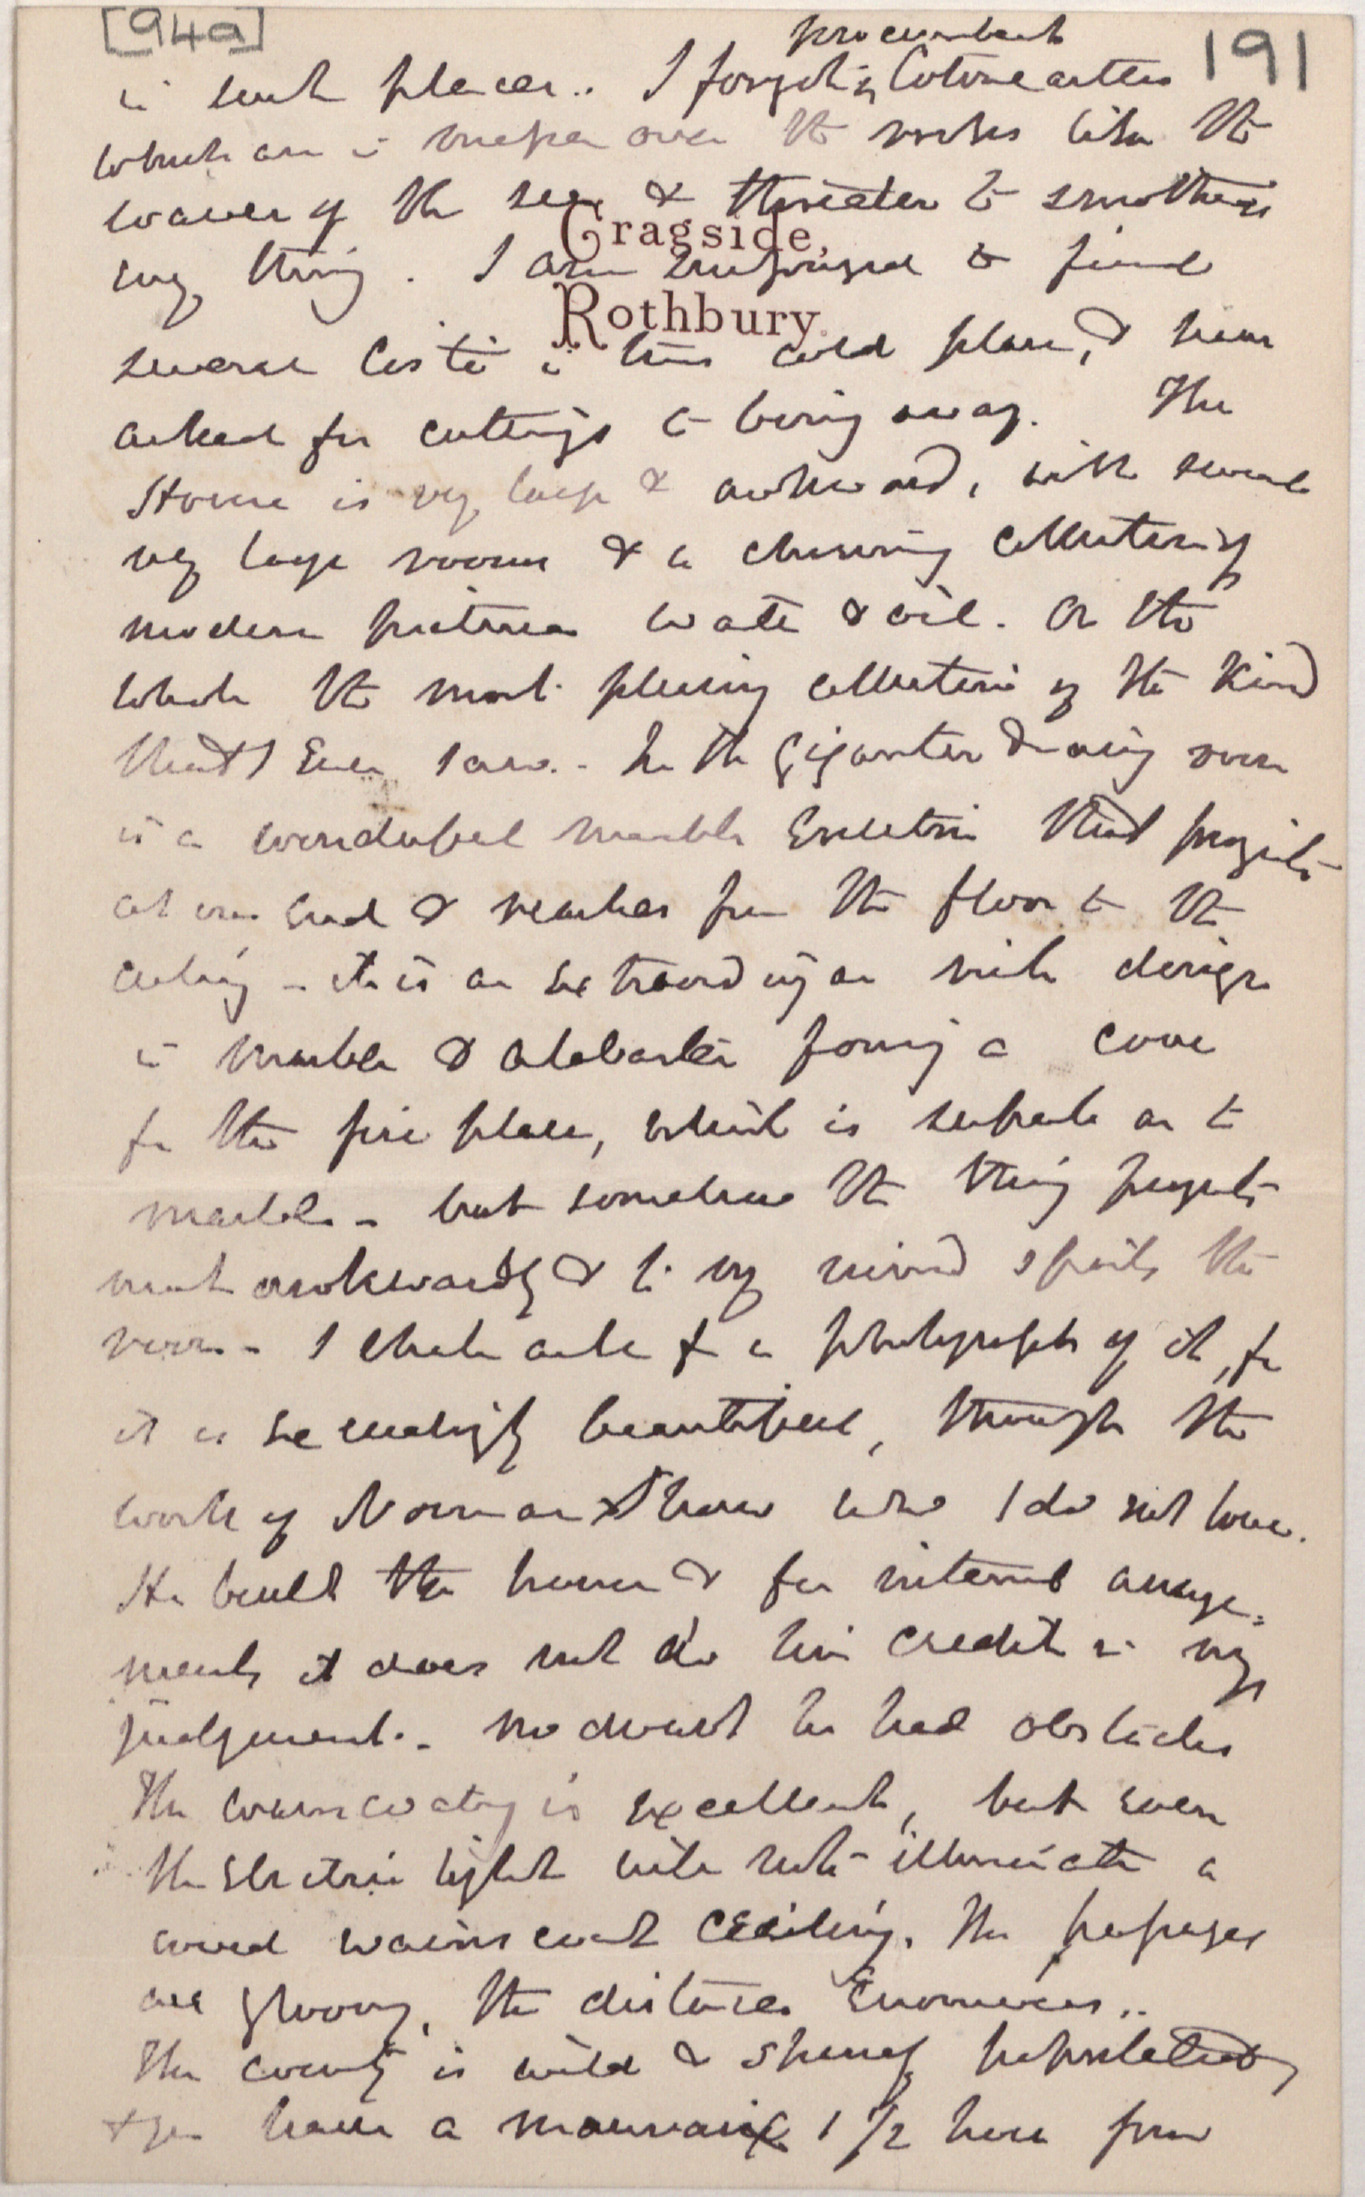 [94a]
191
procumbent
in such places.. I forgot the Cotoneasters
which are in sweeps over the rocks like the
waves of the sea & threaten to smother
every thing. I am surprised to find
Cragside,
Rothbury.
several Cisti in this cold place, & have
asked for cuttings to bring away. The
House is very large & awkward, with several
very large rooms & a charming collection of
modern pictures water & oil. On the
whole the most pleasing collection of the kind
that I ever saw. - In the gigantic drawing room
is a wonderful marble Erection that projects
at one end & reaches from the floor to the
ceiling - it is an extraordinary rich design
in marble & alabaster forming a cove
for the fire place, which is superb as to
marble - but somehow the thing projects
most awkwardly & to my mind spoils the
room - I shall ask for a photograph of it, for
it is exceedingly beautiful, though the
work of Norman Shaw who I do not love.
He built the house & for internal arrange=
ments it does not do him credit in my
judgment. - no doubt he had obstacles
The wainscoating is excellent, but even
the Electric light will not illuminate a
coved wainscoat ceiling. The passages
are gloomy, the distances Enormous..
The country is wild & sparsely populated
& you have a 1 1/2 hour from